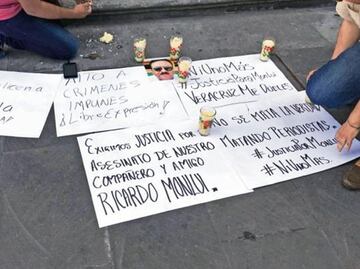 ALTO A
CRÍMENES
IMPUNES
¡Libre Expresión!
Ni Uno Más
#JusticiaParaMonlui
Veracruz Me Dueles
Exigimos JUSTICIA POR
ASESINATO DE NUESTRO
COMPAÑERO Y AMIGO
RICARDO MONLUI.
NO SE MATA LA VERDAD
MATANDO PERIODISTAS.
#JusticiaParaMonlui
#NiUnoMas.